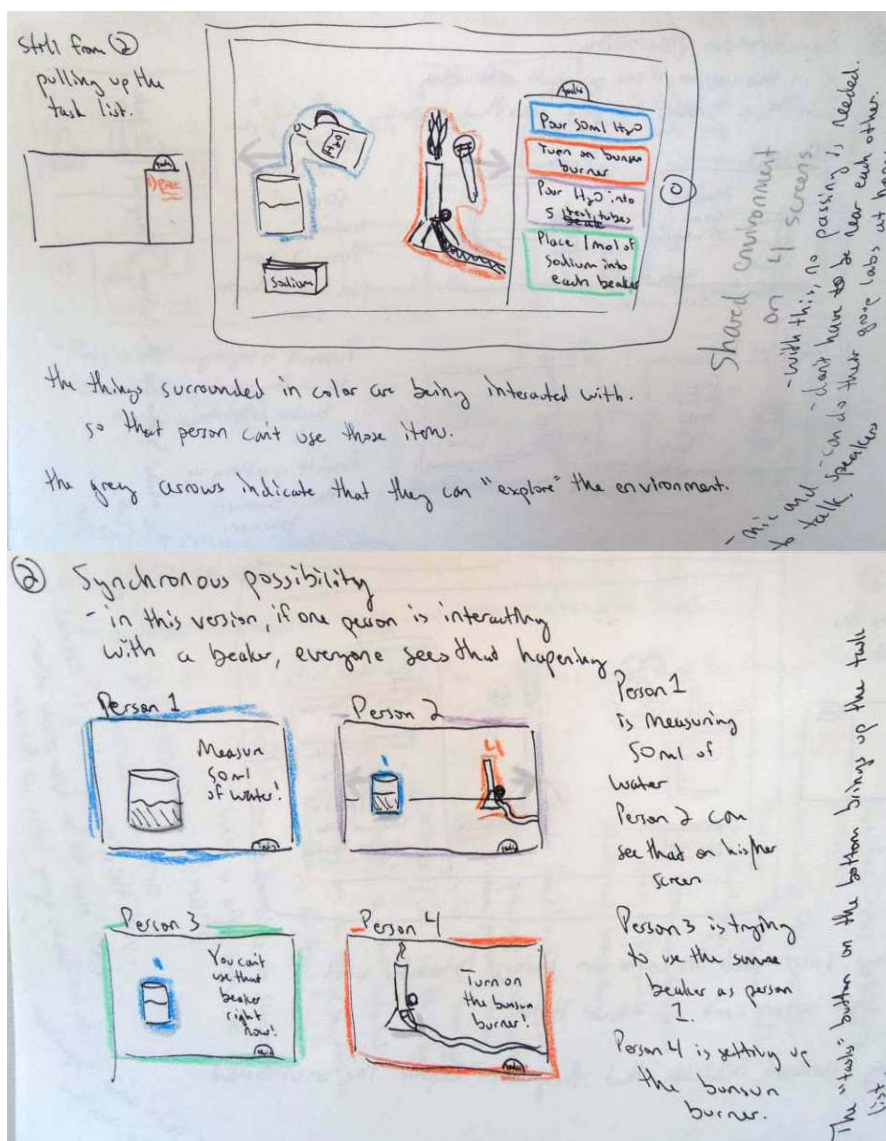 Still from ②
pulling up the
task list.
tasks
H₂O
Sodium
tasks
Pour 50ml H₂O
Turn on bunsun
burner
Pour H₂O into
5 test tubes
Place 1mol of
sodium into
each beaker
Shared environment
on 4 screens.
- with this, no passing is needed.
- don't have to be near each other.
- can do their group labs at home
- mic and speakers
to talk.
the things surrounded in color are being interacted with.
so that person can't use those items.
the grey arrows indicate that they can "explore" the environment.
② Synchronous possibility
- in this version, if one person is interacting
with a beaker, everyone sees that hapening
Person 1
Measure
50ml
of water!
tasks
Person 2
1
4
tasks
Person 3
1
You can't
use that
beaker
right
now!
tasks
Person 4
Turn on
the bunsun
burner!
tasks
Person 1
is measuring
50ml of
water
Person 2 can
see that on his/her
screen
Person 3 is trying
to use the same
beaker as person
1.
Person 4 is setting up
the bunsun
burner.
The "tasks" button on the bottom brings up the task
list.